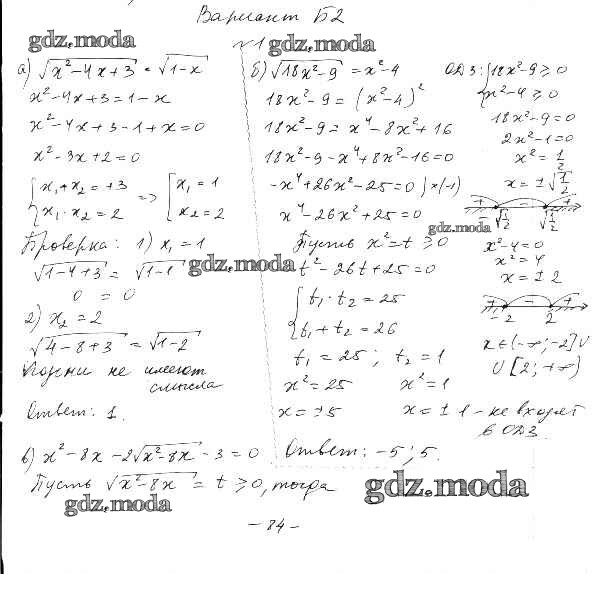 Вариант Б2
gdz.moda
gdz.moda
№1
а) √(x²-4x+3) = √(1-x)
x²-4x+3=1-x
x²-4x+3-1+x=0
x²-3x+2=0
{x₁+x₂=+3
x₁·x₂=2
=> [x₁=1
x₂=2
Проверка: 1) x₁=1
√(1-4+3) = √(1-1)
gdz.moda
0 = 0
2) x₂=2
√(4-8+3) = √(1-2)
Корни не имеют
смысла
Ответ: 1.
б) √(18x²-9) = x²-4
18x²-9=(x²-4)²
18x²-9=x⁴-8x²+16
18x²-9-x⁴+8x²-16=0
-x⁴+26x²-25=0 | ×(-1)
x⁴-26x²+25=0
Пусть x²=t ≥0
t²-26t+25=0
{t₁·t₂=25
t₁+t₂=26
t₁=25; t₂=1
x²=25 x²=1
x=±5 x=±1 - не входят
в ОДЗ.
Ответ: -5; 5.
ОДЗ: {18x²-9≥0
x²-4≥0
18x²-9=0
2x²-1=0
x²=1/2
x=±√(1/2)
+ - +
√(1/2) √(1/2)
gdz.moda
x²-4=0
x²=4
x=±2
+ - +
-2 2
x∈(-∞;-2]∪
∪[2;+∞)
в) x²-8x-2√(x²-8x)-3=0
Пусть √(x²-8x) = t ≥0, тогда
gdz.moda
gdz.moda
-84-